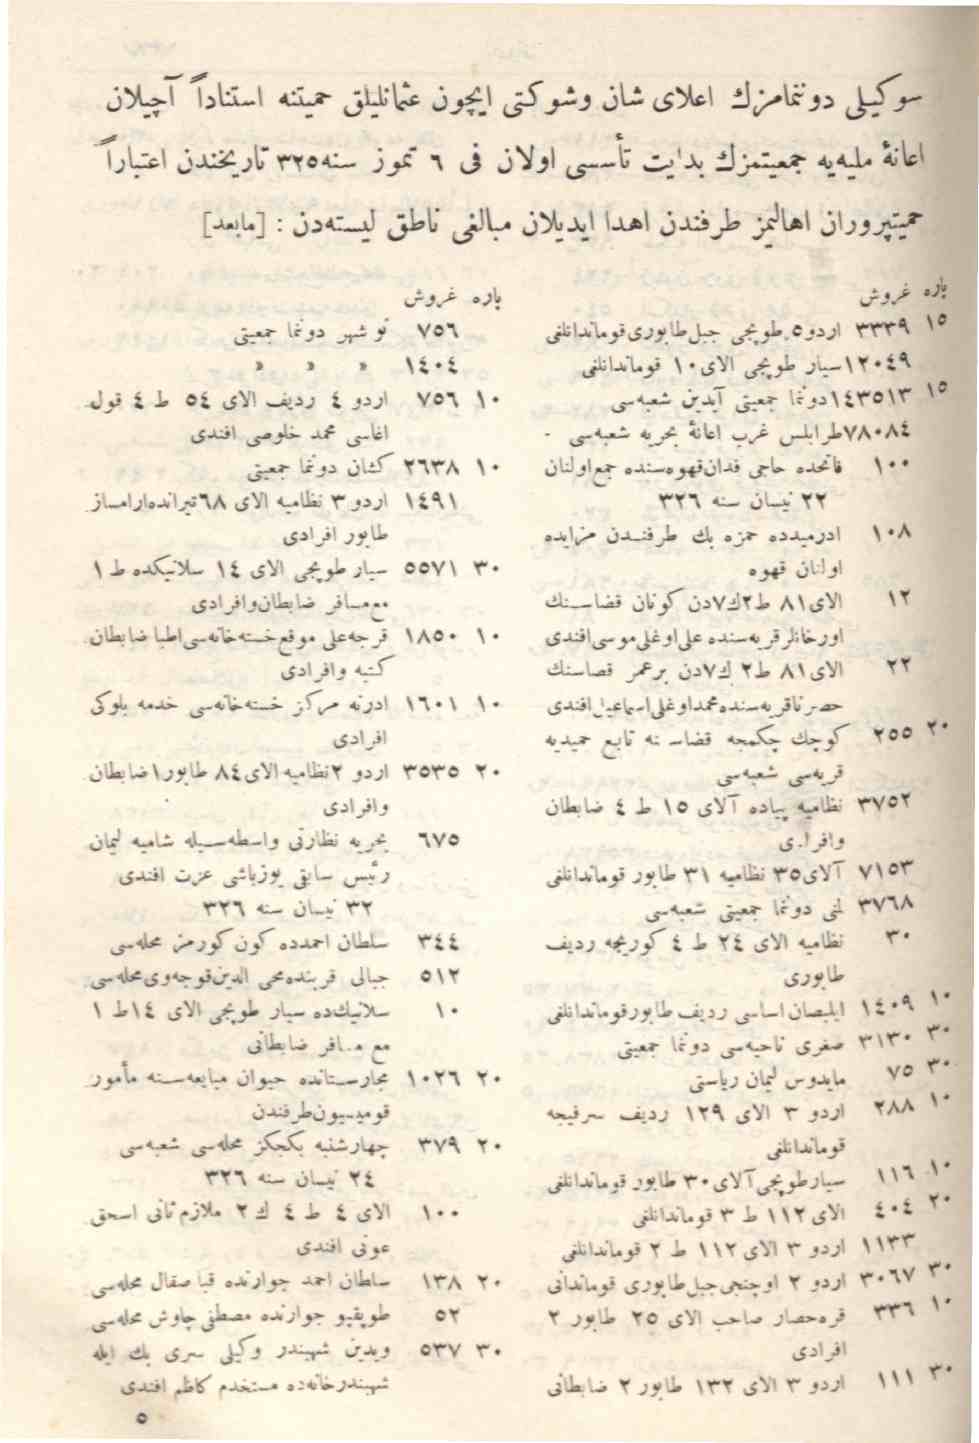 سوكيلى دوننمامزك اعلاى شان وشوكتى ايچون عثمانليلق حميتنه استناداً آچيلان
اعانهٔ مليه‌يه جمعيتمزك بدايت تأسسى اولان فى ٦ تموز سنه ٣٢٥ تاريخندن اعتباراً
حميتپروران اهاليمز طرفندن اهدا ايديلان مبالغى ناطق ليسته‌دن : [مابعد]
پاره غروش
١٥ ٣٣٣٩ اردو ٥ طوپجى جبل طابورى قوماندانلغى
١٢٠٤٩ سيار طوپجى الاى ١٠ قوماندانلغى
١٥ ١٤٣٥١٣ دوننما جمعيتى آيدين شعبه‌سى
٧٨٠٨٤ طرابلس غرب اعانهٔ بحريه شعبه‌سى
١٠٠ فاتحده حاجى فدان قهوه‌سنده جمع اولنان
٢٢ نيسان سنه ٣٢٦
١٠٨ ادرميدده حمزه بك طرفندن مزايده
اولنان قهوه
١٢ الاى ٨١ ط ٢ ك ٧ دن كونان قضاسنك
اورخانلر قريه‌سنده على اوغلى موسى افندى
٢٢ الاى ٨١ ط ٢ ك ٧ دن برعمر قضاسنك
قريه‌سنده محمد اوغلى اسماعيل افندى
٢٠ ٢٥٥ كوچك چكمجه قضاسنه تابع حميديه
قريه‌سى شعبه‌سى
٣٧٥٢ نظاميه پياده آلاى ١٥ ط ٤ ضابطان
وافرادى
٧١٥٣ آلاى ٣٥ نظاميه ٣١ طابور قوماندانلغى
٣٧٦٨ لنى دوننما جمعيتى شعبه‌سى
٣٠ نظاميه الاى ٢٤ ط ٤ كوريجه رديف
طابورى
١٠ ١٤٠٩ ايلبصان اساسى رديف طابور قوماندانلغى
٣٠ ٣١٣٠ صغرى ناحيه‌سى دوننما جمعيتى
٣٠ ٧٥ مايدوس ليمان رياستى
١٠ ٢٨٨ اردو ٣ الاى ١٢٩ رديف سرفيجه
قوماندانلغى
١٠ ١١٦ سيار طوپجى آلاى ٣٠ طابور قوماندانلغى
٢٠ ٤٠٤ الاى ١١٢ ط ٣ قوماندانلغى
١١٣٣ اردو ٣ الاى ١١٢ ط ٢ قوماندانلغى
٣٠ ٣٠٦٧ اردو ٢ اوچنجى جبل طابورى قوماندانى
١٠ ٣٣٦ قره‌حصار صاحب الاى ٢٥ طابور ٢
افرادى
٣٠ ١١١ اردو ٣ الاى ١٣٢ طابور ٢ ضابطانى
پاره غروش
٧٥٦ نوشهر دوننما جمعيتى
١٤٠٤ » » »
١٠ ٧٥٦ اردو ٤ رديف الاى ٥٤ ط ٤ قول
اغاسى محمد خلوصى افندى
١٠ ٢٦٣٨ كشان دوننما جمعيتى
١٤٩١ اردو ٣ نظاميه الاى ٦٨
طابور افرادى
٣٠ ٥٥٧١ سيار طوپجى الاى ١٤ سلانيكده ط ١
مع مسافر ضابطان وافرادى
١٠ ١٨٥٠ قرجه‌على موقع خسته‌خانه‌سى اطبا ضابطان
كتبه وافرادى
١٠ ١٦٠١ ادرنه مركز خسته‌خانه‌سى خدمه بلوكى
افرادى
٢٠ ٣٥٣٥ اردو ٢ نظاميه الاى ٨٤ طابور ١ ضابطان
وافرادى
٦٧٥ بحريه نظارتى واسطه‌سيله شاميه ليمان
رئيس سابقى يوزباشى عزت افندى
٣٢ نيسان سنه ٣٢٦
٣٤٤ سلطان احمدده كون كورمز محله‌سى
٥١٢ جبالى قربنده محى الدين قوجه‌وى محله‌سى
١٠ سلانيك‌ده سيار طوپجى الاى ١٤ ط ١
مع مسافر ضابطانى
٢٠ ١٠٢٦ مجارستانده حيوان مبايعه‌سنه مأمور
قوميسيون طرفندن
٢٠ ٣٧٩ چهارشنبه بكجكز محله‌سى شعبه‌سى
٢٤ نيسان سنه ٣٢٦
١٠٠ الاى ٤ ط ٤ ك ٢ ملازم ثانى اسحق
عونى افندى
٢٠ ١٣٨ سلطان احمد جوارنده قبا صقال محله‌سى
٥٢ طوپقپو جوارنده مصطفى چاوش محله‌سى
٣٠ ٥٣٧ ويدين شهبندر وكيلى سرى بك ايله
شهبندرخانه‌ده مستخدم كاظم افندى
٥